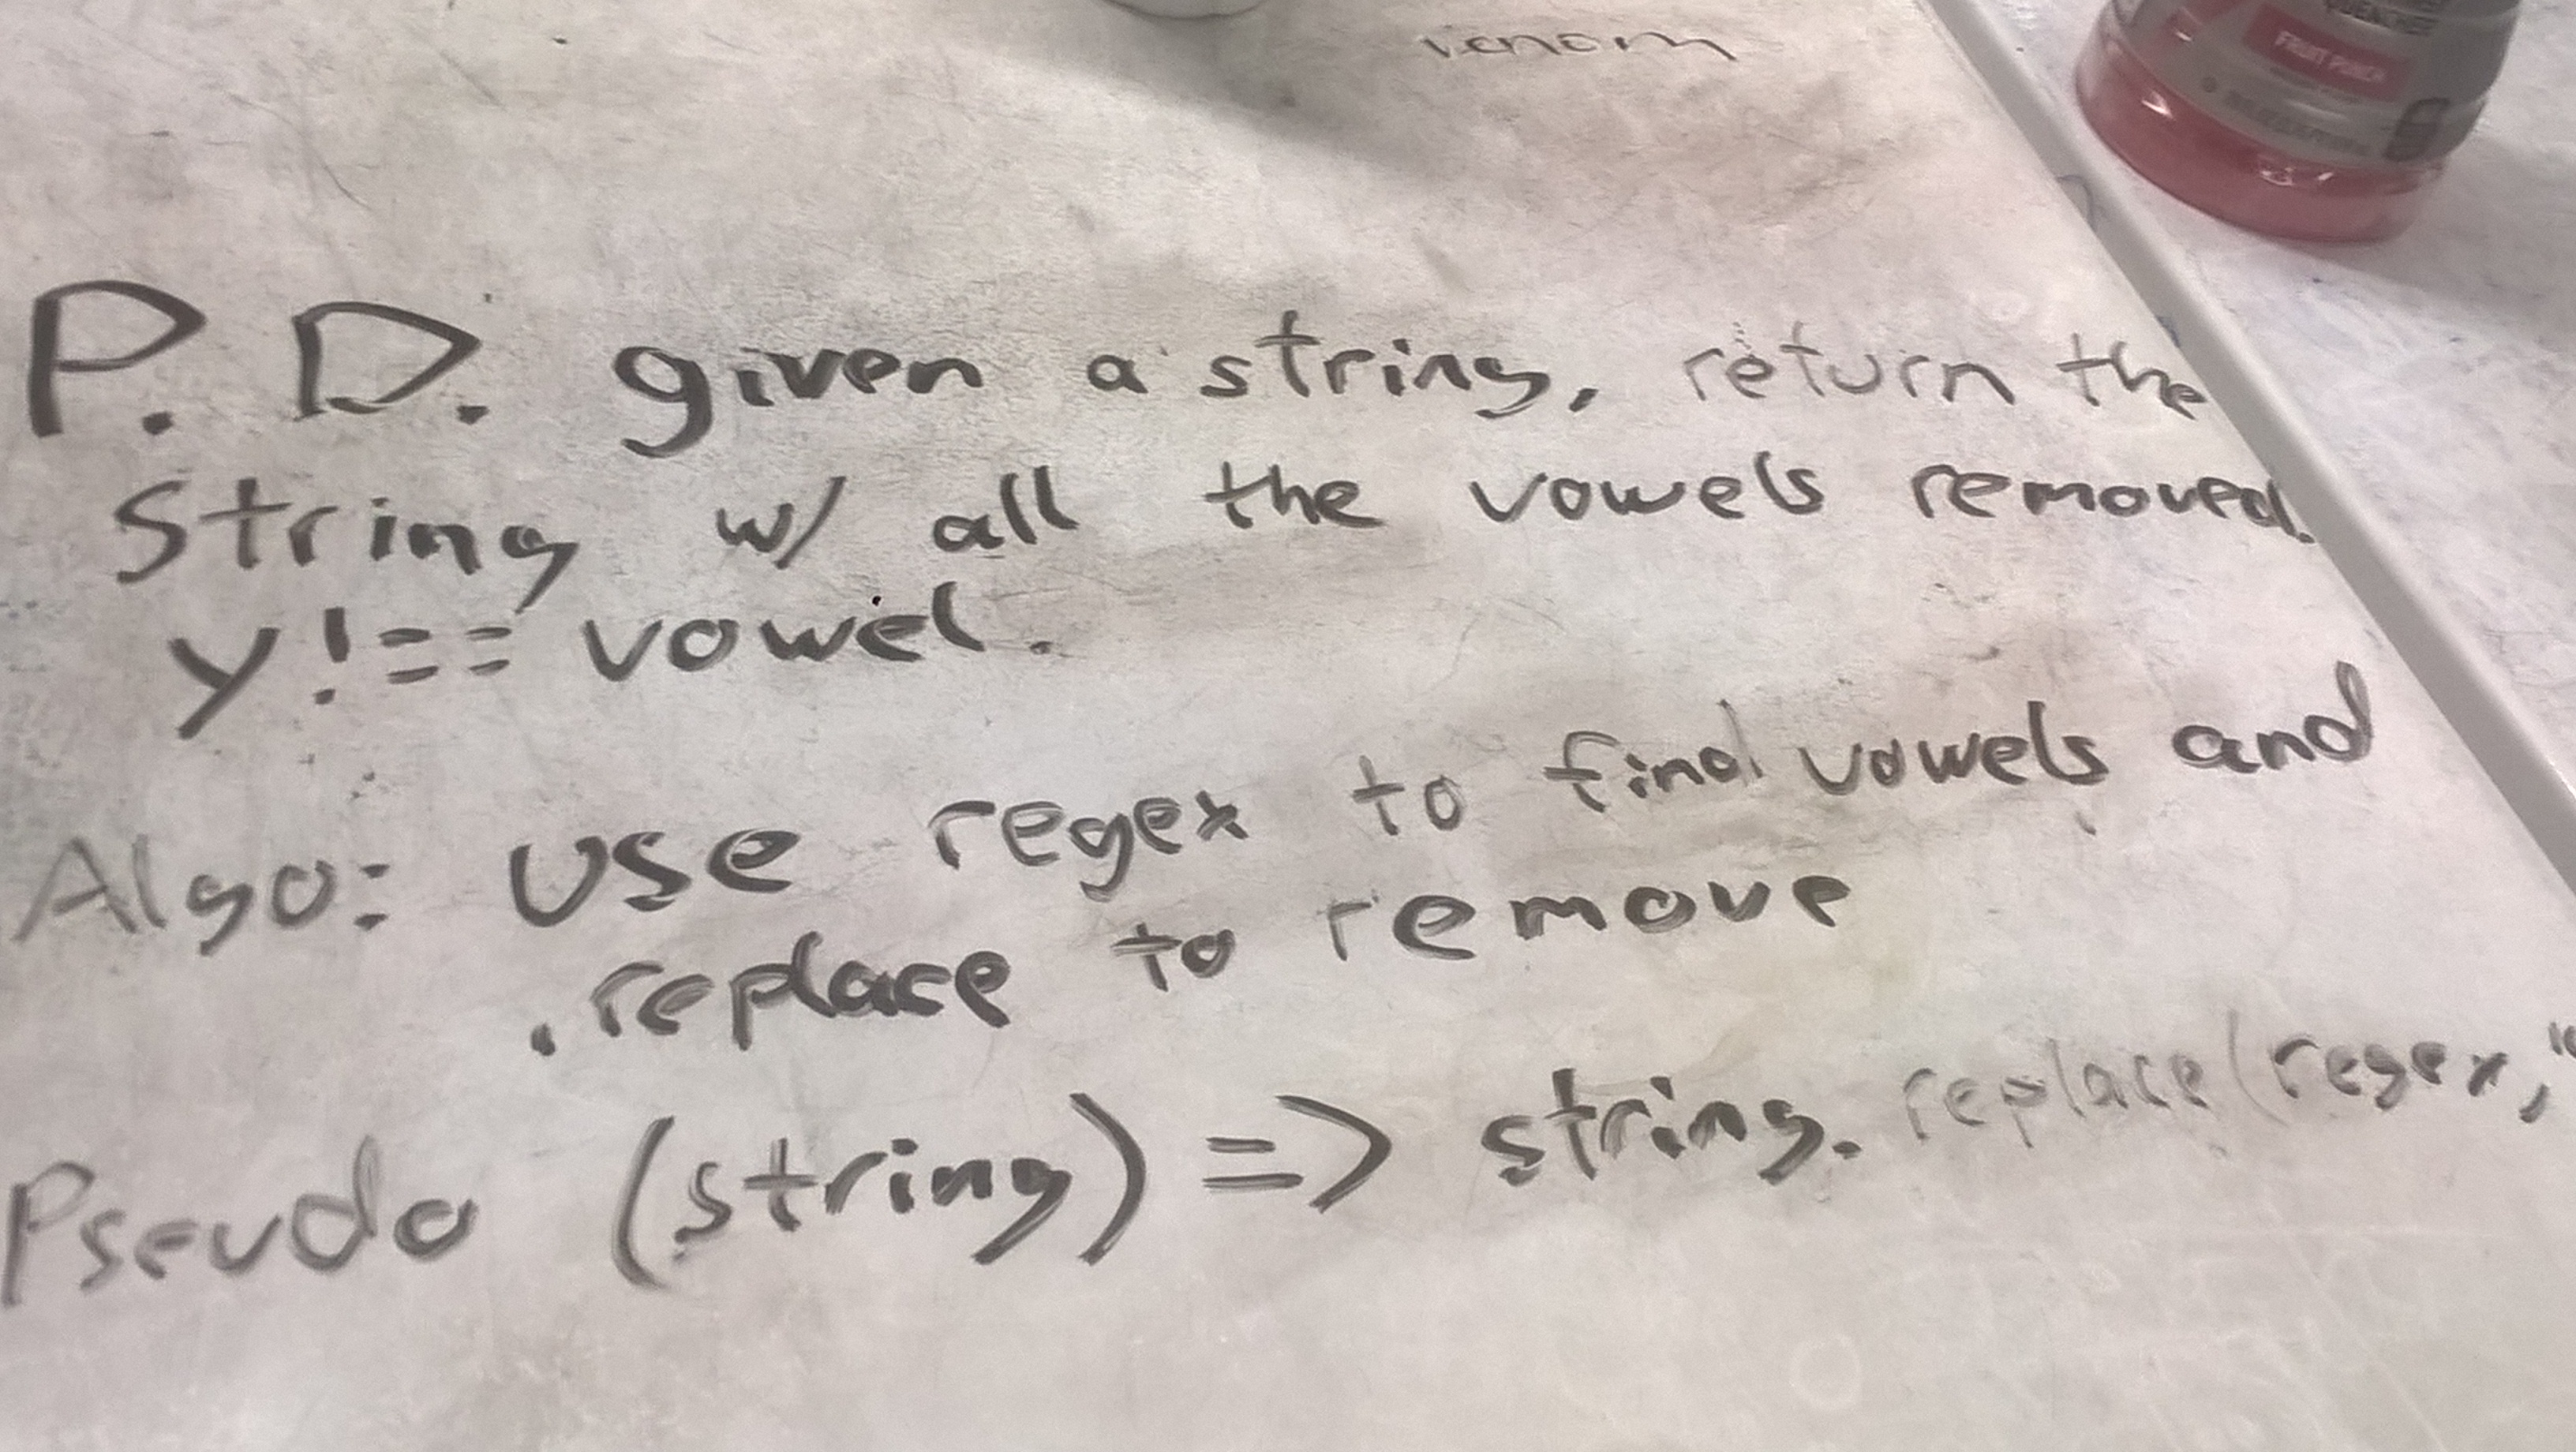 venom
QUENCHER
FRUIT PUNCH
P. D. given a string, return the
string w/ all the vowels removed.
y!== vowel.
Algo: use regex to find vowels and
.replace to remove
Pseudo (string) => string. replace(regex, "